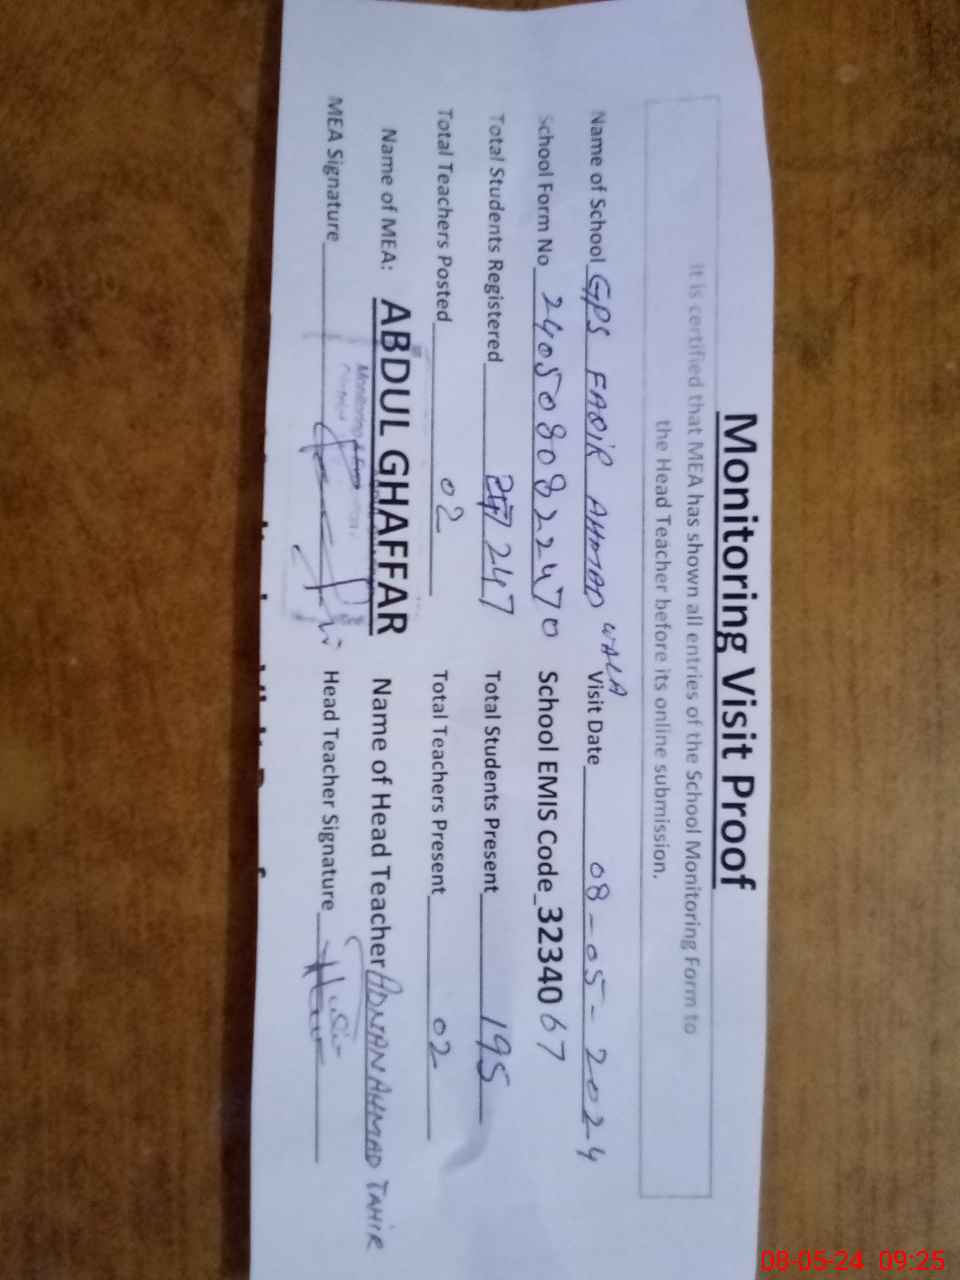 Monitoring Visit Proof
It is certified that MEA has shown all entries of the School Monitoring Form to
the Head Teacher before its online submission.
Name of School GPS FAQIR AHMAD WALA Visit Date 08-05-2024
School Form No 240508082270 School EMIS Code_32340 67
Total Students Registered 247 247 Total Students Present 195
Total Teachers Posted 02 Total Teachers Present 02
Name of MEA: ABDUL GHAFFAR Name of Head Teacher ADNAN AHMAD TAHIR
MEA Signature Head Teacher Signature
08-05-24 09:25